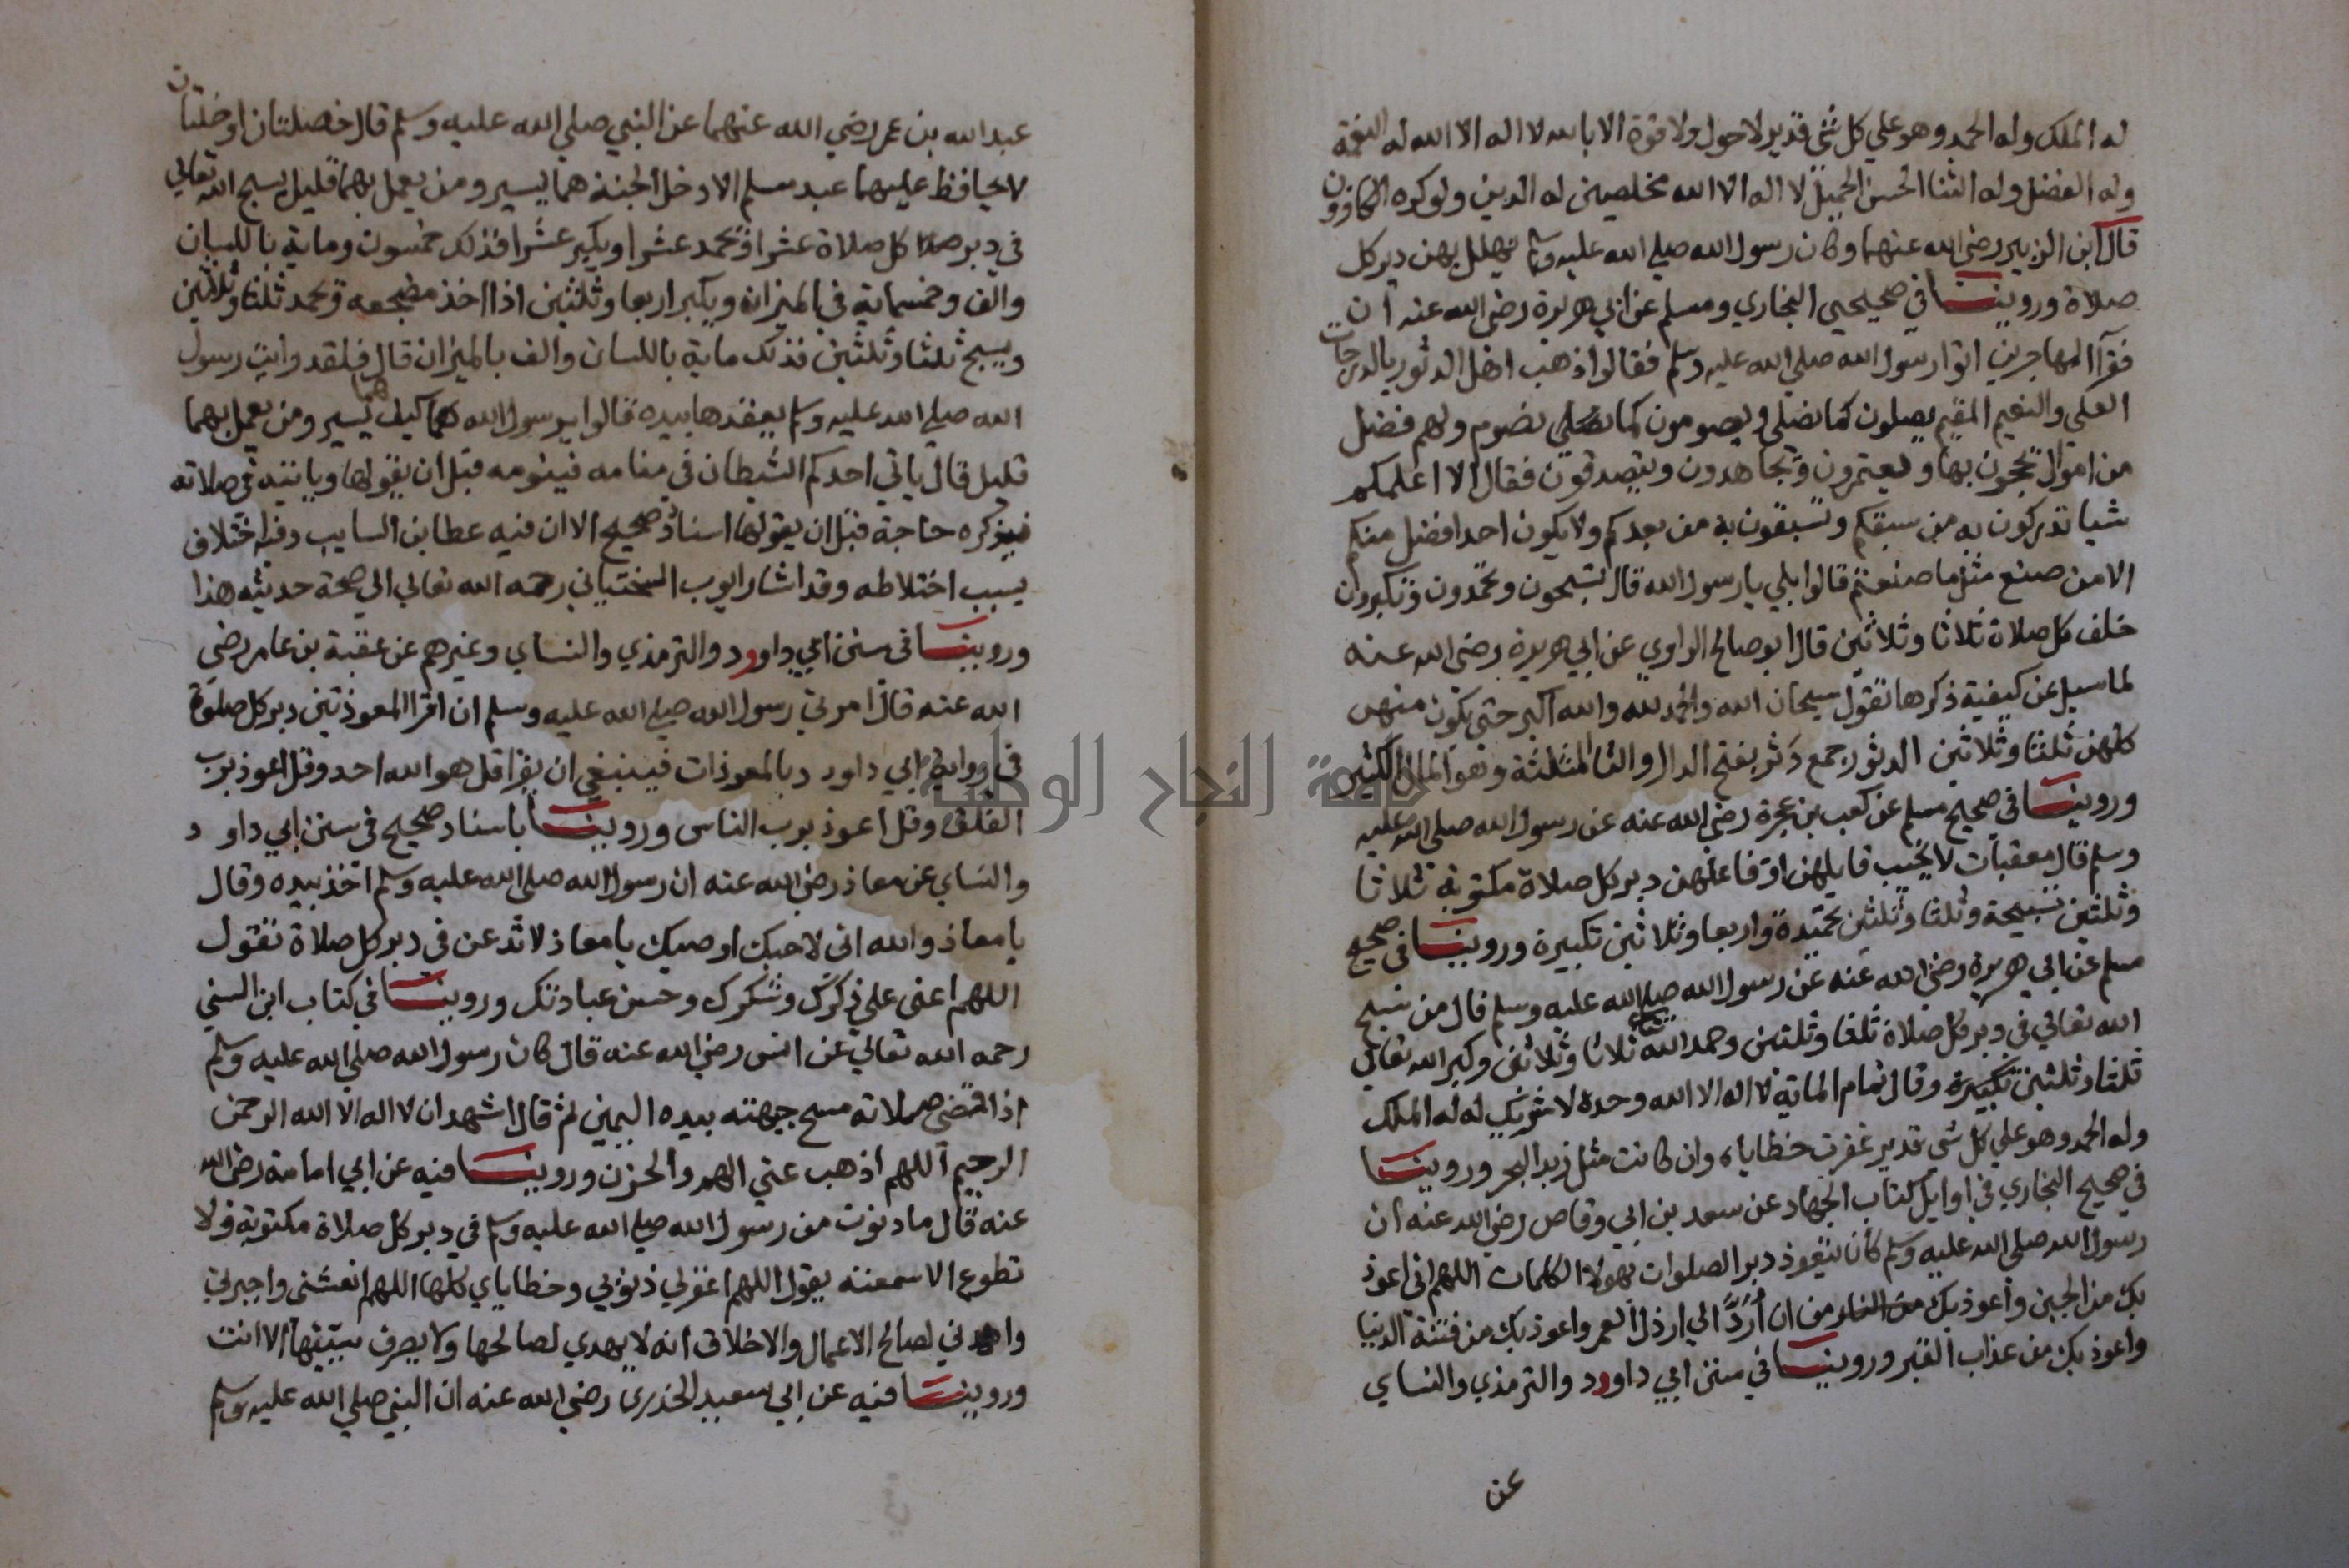 له الملك وله الحمد وهو علي كل شئ قدير لا حول ولا قوة الا بالله لا اله الا الله له النعمة
وله الفضل وله الثنا الحسن الجميل لا اله الا الله مخلصين له الدين ولو كره الكافرون
قال ابن الزبير رضي الله عنهما وكان رسول الله صلي الله عليه وسلم يهلل بهن دبر كل
صلاة وروينا في صحيحي البخاري ومسلم عن ابي هريرة رضي الله عنه ان
فقرآ المهاجرين اتوا رسول الله صلي الله عليه وسلم فقالوا ذهب اهل الدثور بالدرجات
العلي والنعيم المقيم يصلون كما نصلي ويصومون كما نصلي نصوم ولهم فضل
من اموال يحجون بها ويعتمرون ويجاهدون ويتصدقون فقال الا اعلمكم
شيا تدركون به من سبقكم وتسبقون به من بعدكم ولا يكون احدا فضل منكم
الا من صنع مثل ما صنعتم قالوا بلي يا رسول الله قال تسبحون وتحمدون وتكبرون
خلف كل صلاة ثلاثا وثلاثين قال ابو صالح الراوي عن ابي هريرة رضي الله عنه
لما سيل عن كيفية ذكرها تقول سبحان الله والحمد لله والله اكبر حتي تكون منهن
كلهن ثلثا وثلاثين الدثور جمع دثر بفتح الدال والثا المثلثة وهو المال الكثير
وروينا في صحيح مسلم عن كعب بن عجرة رضي الله عنه عن رسول الله صلي الله عليه
وسلم قال معقبات لا يخيب قايلهن او فاعلهن دبر كل صلاة مكتوبة ثلاثا
وثلثين تسبيحة وثلثا وثلثين تحميدة واربعا وثلاثين تكبيرة وروينا في صحيح
مسلم عن ابي هريرة رضي الله عنه عن رسول الله صلي الله عليه وسلم قال من سبح
الله تعالي في دبر كل صلاة ثلثا وثلثين وحمد الله ثلاثا وثلاثين وكبر الله تعالي
ثلثا وثلثين تكبيرة وقال تمام الماية لا اله الا الله وحده لا شريك له له الملك
وله الحمد وهو علي كل شي قدير غفرت خطاياه وان كانت مثل زبد البحر وروينا
في صحيح البخاري في اوايل كتاب الجهاد عن سعد بن ابي وقاص رضي الله عنه ان
رسول الله صلي الله عليه وسلم كان يتعوذ دبر الصلوات بهولا الكلمات اللهم اني اعوذ
بك من الجبن واعوذ بك من ان أُرَدَّ الي ارذل العمر واعوذ بك من فتنة الدنيا
واعوذ بك من عذاب القبر وروينا في سنن ابي داود والترمذي والنساي
عن
عبد الله بن عمر رضي الله عنهما عن النبي صلي الله عليه وسلم قال خصلتان او خلتان
لا يحافظ عليهما عبد مسلم الا دخل الجنة هما يسير ومن يعمل بهما قليل يسبح الله تعالي
في دبر كل صلاة عشرا ويحمد عشرا ويكبر عشرا فذلك خمسون وماية باللسان
والف وخمسماية في الميزان ويكبر اربعا وثلثين اذا اخذ مضجعه ويحمد ثلثا وثلاثين
ويسبح ثلثا وثلثين فذلك ماية باللسان والف بالميزان قال فلقد رايت رسول
الله صلي الله عليه وسلم يعقدها بيده قالوا يرسول الله كيف هما يسير ومن يعمل بهما
قليل قال ياتي احدكم الشيطان في منامه فينومه قبل ان يقولها وياتيه في صلاته
فيذكره حاجة قبل ان يقولها اسناده صحيح الا ان فيه عطا بن السايب وفيه اختلاف
بسبب اختلاطه وقد اشار ايوب السختياني رحمه الله تعالي الي صحة حديثه هذا
وروينا في سنن ابي داود والترمذي والنساي وغيرهم عن عقبة بن عامر رضي
الله عنه قال امرني رسول الله صلي الله عليه وسلم ان اقرا المعوذتين دبر كل صلوة
في رواية ابي داود بالمعوذات فينبغي ان يقرا قل هو الله احد وقل اعوذ برب
الفلق وقل اعوذ برب الناس وروينا باسناد صحيح في سنن ابي داود
والنساي عن معاذ رضي الله عنه ان رسول الله صلي الله عليه وسلم اخذ بيده وقال
يا معاذ والله اني لاحبك اوصيك يا معاذ لا تدعن في دبر كل صلاة تقول
اللهم اعني علي ذكرك وشكرك وحسن عبادتك وروينا في كتاب ابن السني
رحمه الله تعالي عن انس رضي الله عنه قال كان رسول الله صلي الله عليه وسلم
اذا قضي صلاته مسح جبهته بيده اليمين ثم قال اشهد ان لا اله الا الله الرحمن
الرحيم اللهم اذهب عني الهم والحزن وروينا فيه عن ابي امامة رضي الله
عنه قال ما دنوت من رسول الله صلي الله عليه وسلم في دبر كل صلاة مكتوبة ولا
تطوع الا سمعته يقول اللهم اغفر لي ذنوبي وخطاياي كلها اللهم انعشني واجبرني
واهدني لصالح الاعمال والاخلاق انه لا يهدي لصالحها ولا يصرف سيئها الا انت
وروينا فيه عن ابي سعيد الخدري رضي الله عنه ان النبي صلي الله عليه وسلم
جامعة النجاح الوطنية